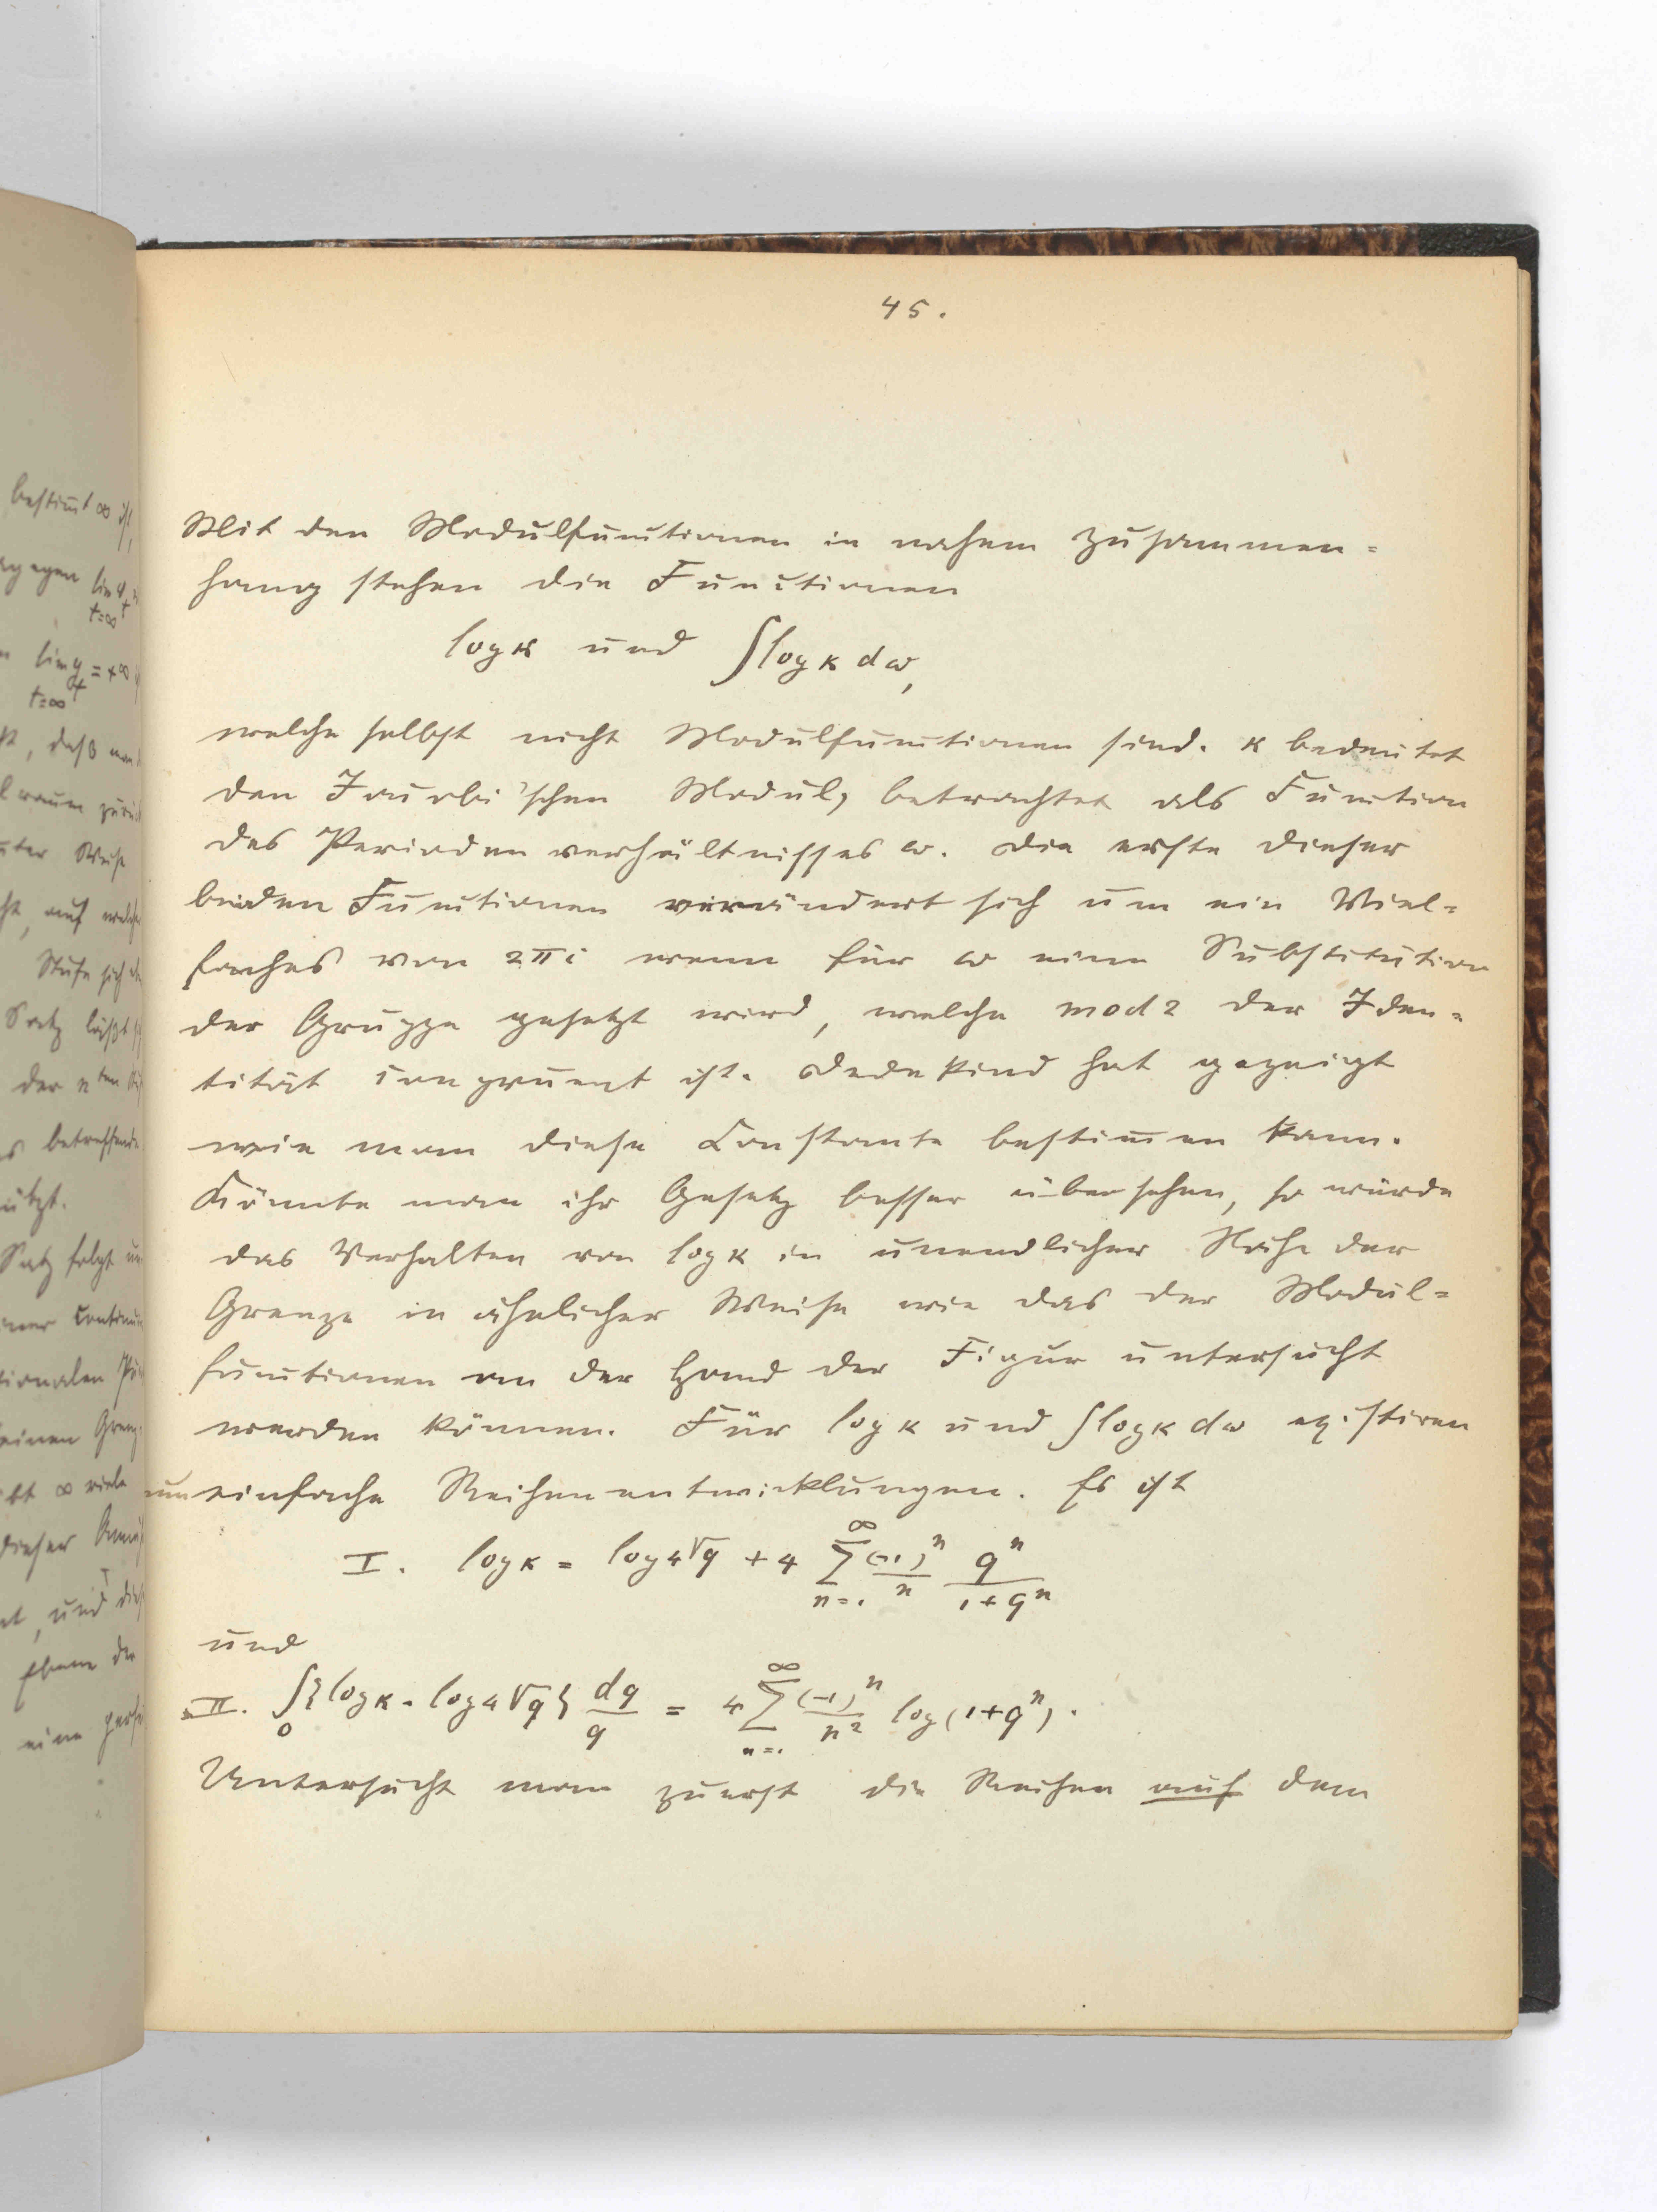 bestim̄t ∞ ist,
t=∞
lim φ = +∞
t=∞
, daß man
Weise
auf welche
Stufe sich
Satz läßt
der n ten
betreffende
Satz folgt
einen
∞ viele
dieser
und
Ebene der
eine
45.
Mit den Modulfunctionen in nahem Zusammen=
hang stehen die Functionen
log κ und ∫log κ dω,
welche selbst nicht Modulfunctionen sind. κ bedeutet
den Jacobi'schen Modul, betrachtet als Function
des Periodenverhältnisses ω. Die erste dieser
beiden Functionen verändert sich um ein Viel=
faches von 2πi wenn für ω eine Substitution
der Gruppe gesetzt wird, welche mod 2 der Iden=
tität congruent ist. Dedekind hat gezeigt
wie man diese Constante bestim̄en kann.
Könnte man ihr Gesetz besser übersehen, so würde
das Verhalten von log κ in unendlicher Nähe der
Grenze in ähnlicher Weise wie das der Modul=
functionen an der Hand der Figur untersucht
werden können. Für log κ und ∫log κ dω existiren
nun einfache Reihenentwicklungen. Es ist
I. log κ = log 4√q + 4 ∑_{n=1}^{∞} (-1)^n/n q^n/(1+q^n)
und
II. ∫_0 {log κ - log 4√q} dq/q = 4 ∑_{n=1}^{∞} (-1)^n/n² log(1+q^n).
Untersucht man zuerst die Reihen auf dem